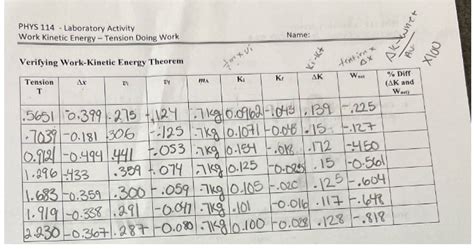 PHYS 114 - Laboratory Activity
Work Kinetic Energy – Tension Doing Work Name:
Verifying Work-Kinetic Energy Theorem
Ki-Kf tension Δx ΔK-Wnet X100
Tension T Δx vi vf mA Ki Kf ΔK Wnet % Diff (ΔK and Wnet)
.5651 -0.399 .275 -.124 .7kg 0.0962 -.043 .139 -.225
.7039 -0.181 .306 -.125 .7kg 0.1071 -0.043 .15 -.127
0.912 -0.494 .441 -.053 .7kg 0.154 -.018 .172 -.450
1.296 -.433 .359 -.074 .7kg 0.125 -0.025 .15 -0.561
1.683 -0.359 .300 -.059 .7kg 0.105 -.020 .125 -.604
1.919 -0.338 .291 -0.047 .7kg .101 -0.016 .117 -.648
2.230 -0.367 .287 -0.080 .7kg 0.100 -0.028 .128 -.818